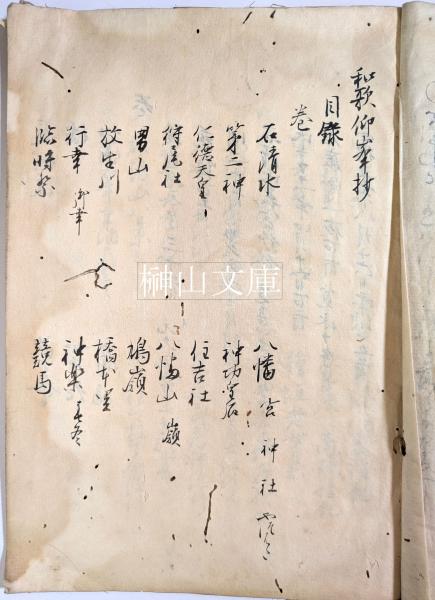 和歌仰峯抄
目録
巻
石清水 八幡宮 神社
第二神 神功皇后
仁徳天皇 住吉社
狩尾社 八幡山 嶺
男山 鳩嶺
放生川 橋本里
行幸 御幸 神楽
臨時祭 競馬
榊山文庫